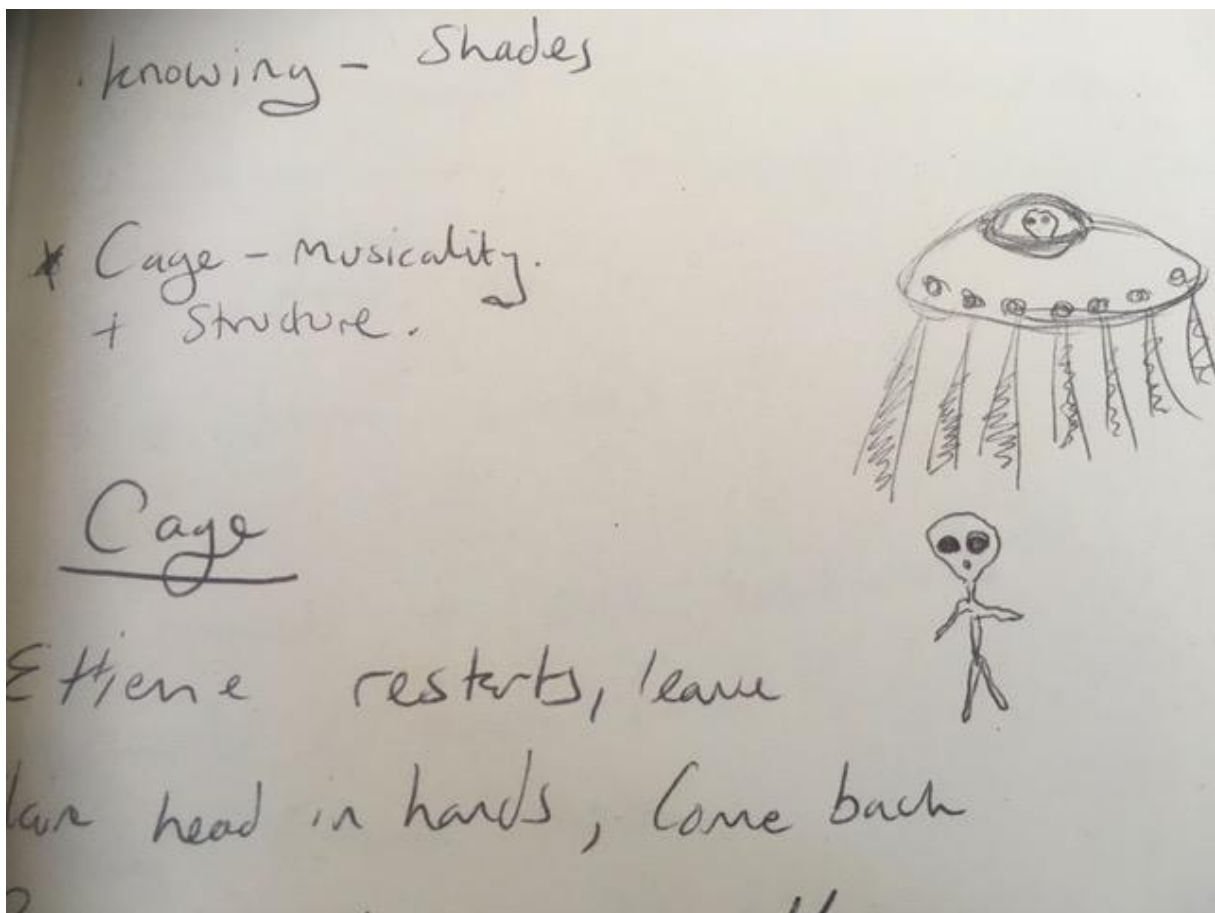 knowing - Shades
* Cage - Musicality.
+ Structure.
Cage
Ettiene restarts, leave
head in hands, Come back